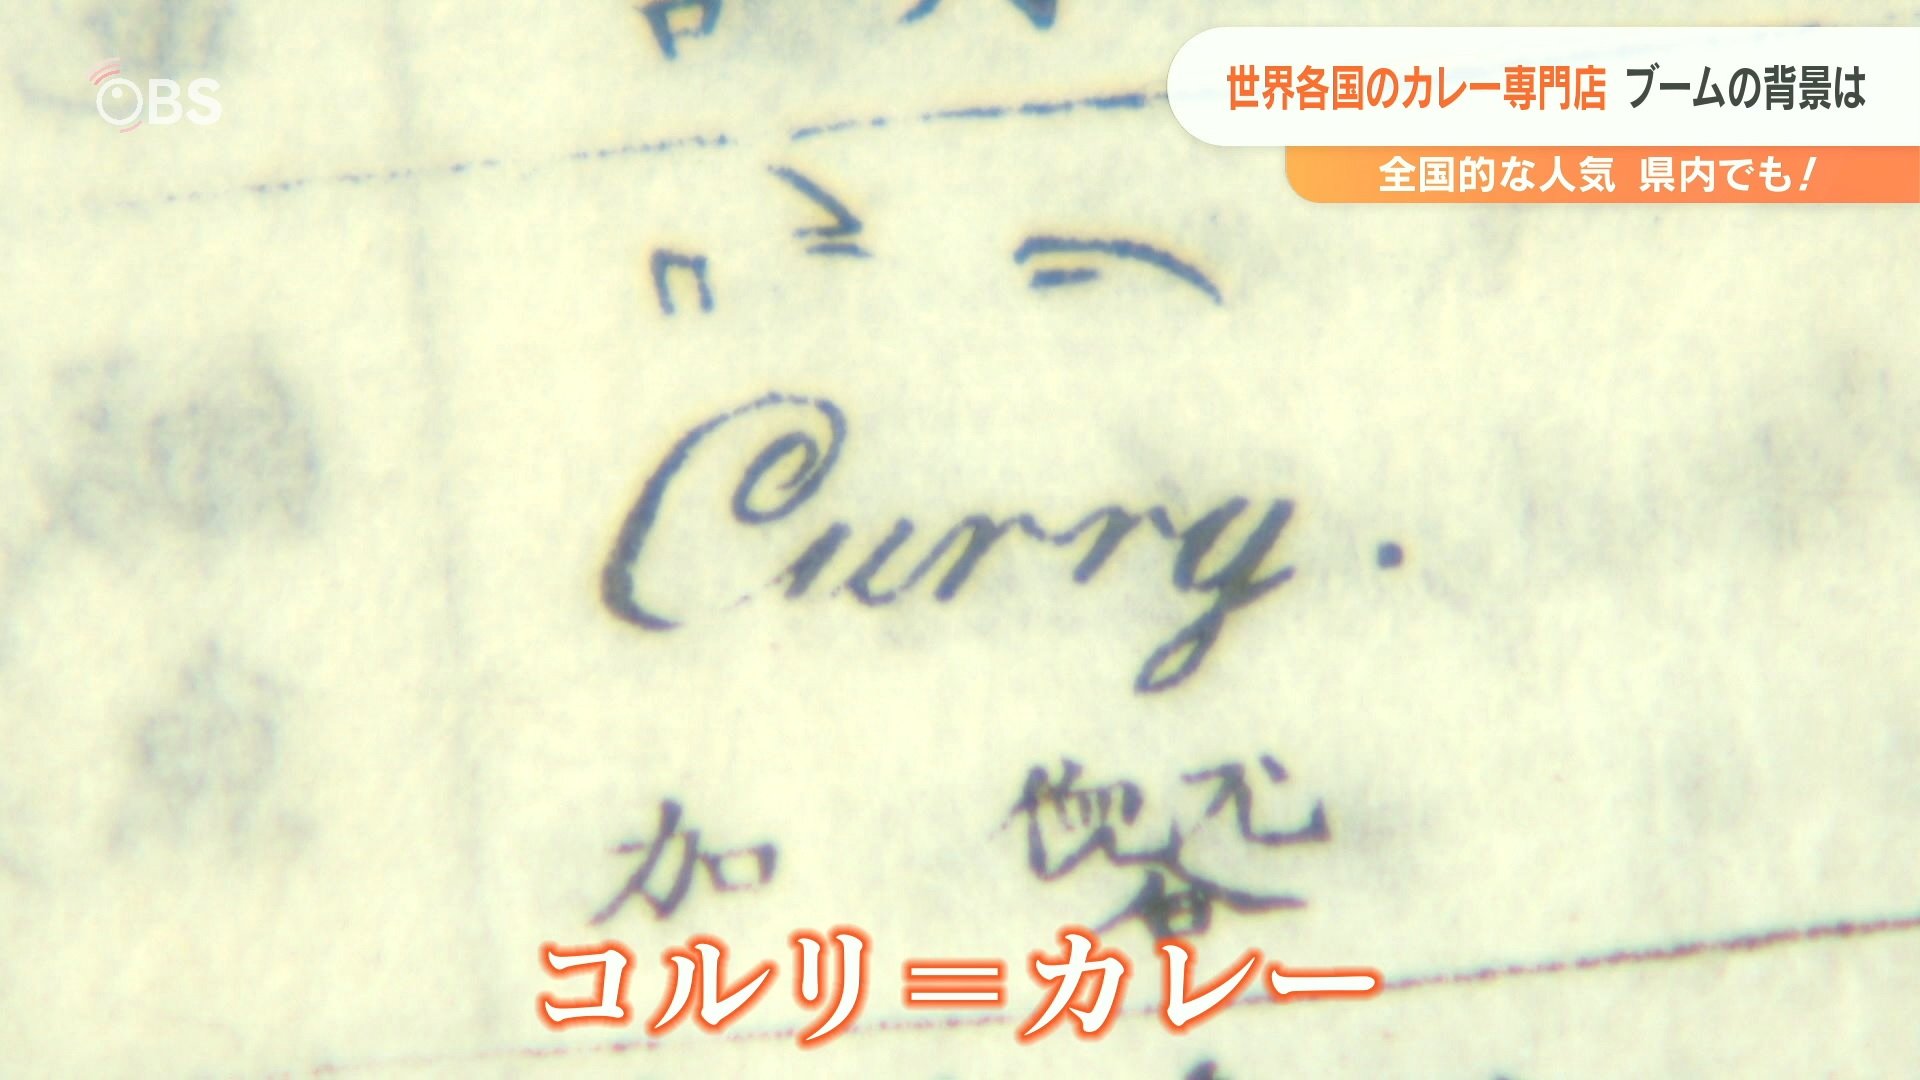 OBS
世界各国のカレー専門店 ブームの背景は
全国的な人気 県内でも!
コルリ
Curry.
加
コルリ=カレー